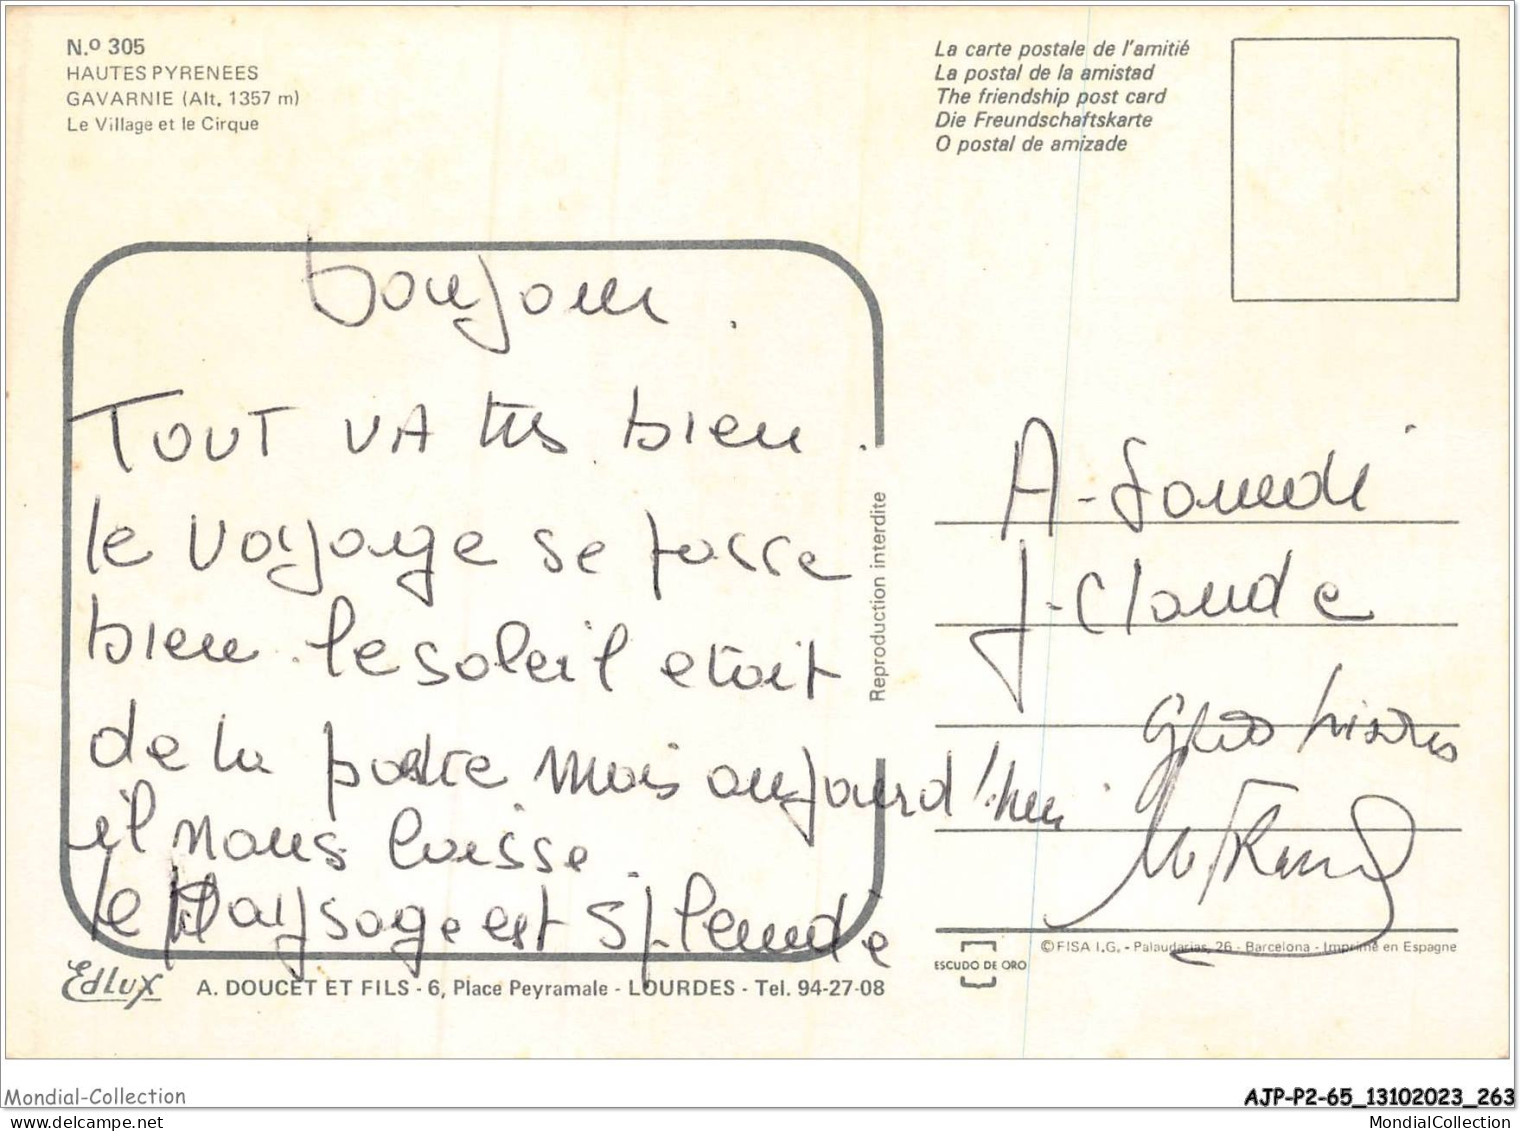 N.º 305
HAUTES PYRENEES
GAVARNIE (Alt. 1357 m)
Le Village et le Cirque
La carte postale de l'amitié
La postal de la amistad
The friendship post card
Die Freundschaftskarte
O postal de amizade
bonjour.
TOUT VA tres bien.
le voyage se passe
bien. le soleil etait
de la partie mais aujourd'hui
il nous laisse.
le Paysage est splende
Reproduction interdite
A-
J-Claude
Gros bisous
EdLux
A. DOUCET ET FILS - 6, Place Peyramale - LOURDES - Tel. 94-27-08
ESCUDO DE ORO
© FISA I.G. - Palaudarias, 26 - Barcelona - Imprimé en Espagne
Mondial-Collection
AJP-P2-65_13102023_263
www.delcampe.net
MondialCollection